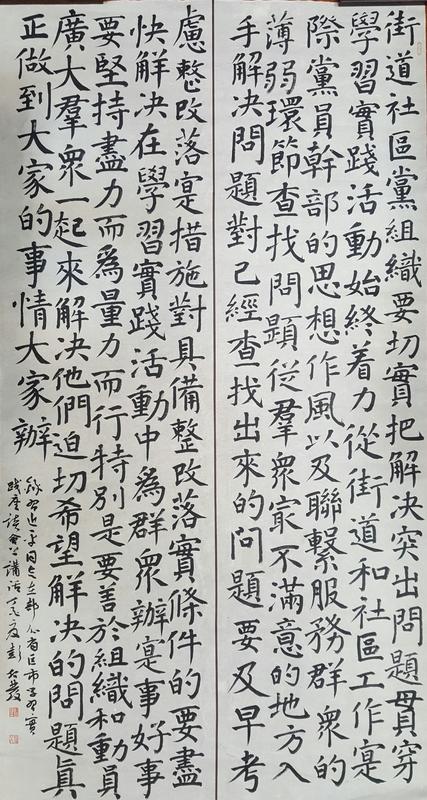 街道社區黨組織要切實把解决突出問題貫穿
學習實踐活動始終着力從街道和社區工作寔
際黨員幹部的思想作風以及聯繫服務群衆的
薄弱環節查找問題從羣衆最不滿意的地方入
手解决問題對已經查找出來的问題要及早考
慮整改落寔措施對具備整改落實條件的要盡
快解决在學習實踐活動中爲群衆辦寔事好事
要堅持盡力而爲量力而行特别是要善於組織和動員
廣大羣衆一起來解决他們迫切希望解决的問題真
正做到大家的事情大家辦
錄習近平同志在部分省區市學習實
踐座談會上講話